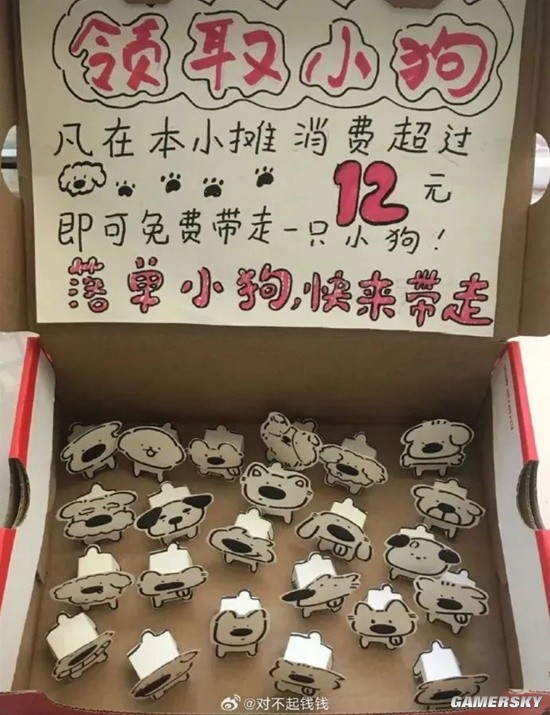 领取小狗
凡在本小摊消费超过
12元
即可免费带走一只小狗!
落单小狗,快来带走
@对不起钱钱
GAMERSKY